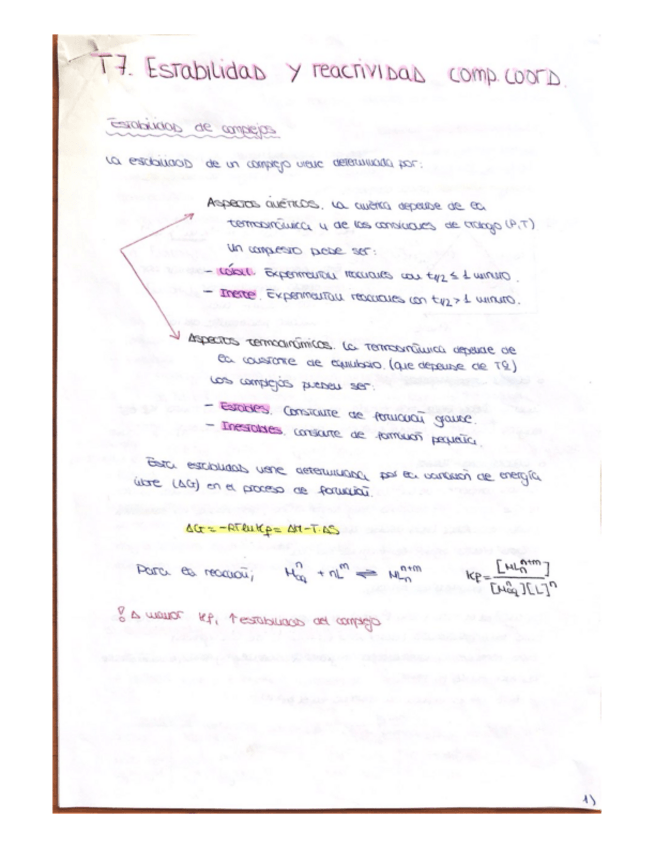 T7. Estabilidad y reactividad comp. coord.
Estabilidad de complejos
La estabilidad de un complejo viene determinada por:
Aspectos cinéticos. La cinética depende de la
termodinámica y de las condiciones de trabajo (P,T)
Un compuesto puede ser:
- Lábil. Experimentan reacciones con t1/2 ≤ 1 minuto.
- Inerte. Experimentan reacciones con t1/2 > 1 minuto.
Aspectos termodinámicos. La termodinámica depende de
la constante de equilibrio. (que depende de Tª)
Los complejos pueden ser:
- Estables. Constante de formación grande.
- Inestables. Constante de formación pequeña.
Esta estabilidad viene determinada por la variación de energía
libre (ΔG) en el proceso de formación.
ΔG = -RT ln Kf = ΔH - T·ΔS
Para la reacción; M^n_aq + nL^m ⇌ ML_n^n+m Kf = [ML_n^n+m] / [M^n_aq][L]^n
! Δ mayor Kf, ↑ estabilidad del complejo
1)